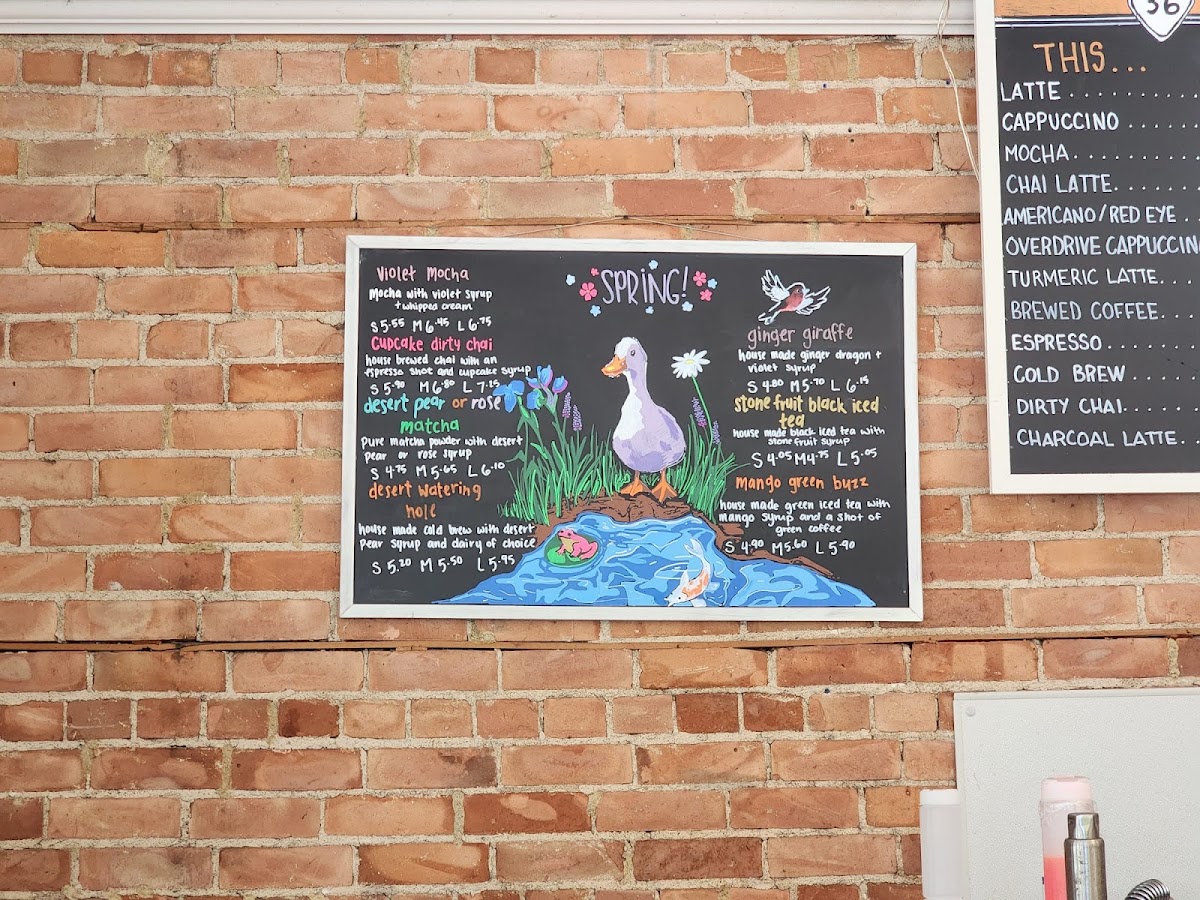 SPRING!
Violet Mocha
Mocha with violet syrup
+ whipped cream
S 5.55 M 6.45 L 6.75
Cupcake dirty chai
house brewed chai with an
espresso shot and cupcake syrup
S 5.90 M 6.80 L 7.25
desert pear or rose
matcha
Pure matcha powder with desert
pear or rose syrup
S 4.75 M 5.65 L 6.10
desert watering
hole
house made cold brew with desert
Pear syrup and dairy of choice
S 5.20 M 5.50 L 5.95
ginger giraffe
house made ginger dragon +
violet syrup
S 4.80 M 5.70 L 6.15
stone fruit black iced
tea
house made black iced tea with
stone fruit syrup
S 4.05 M 4.75 L 5.05
mango green buzz
house made green iced tea with
mango syrup and a shot of
green coffee
S 4.90 M 5.60 L 5.90
36
THIS...
LATTE . . . . . . . . .
CAPPUCCINO . . . . .
MOCHA . . . . . . . .
CHAI LATTE. . . . . .
AMERICANO/RED EYE . .
OVERDRIVE CAPPUCCINO
TURMERIC LATTE. . .
BREWED COFFEE. . .
ESPRESSO . . . . . .
COLD BREW . . . . .
DIRTY CHAI. . . . . .
CHARCOAL LATTE. .